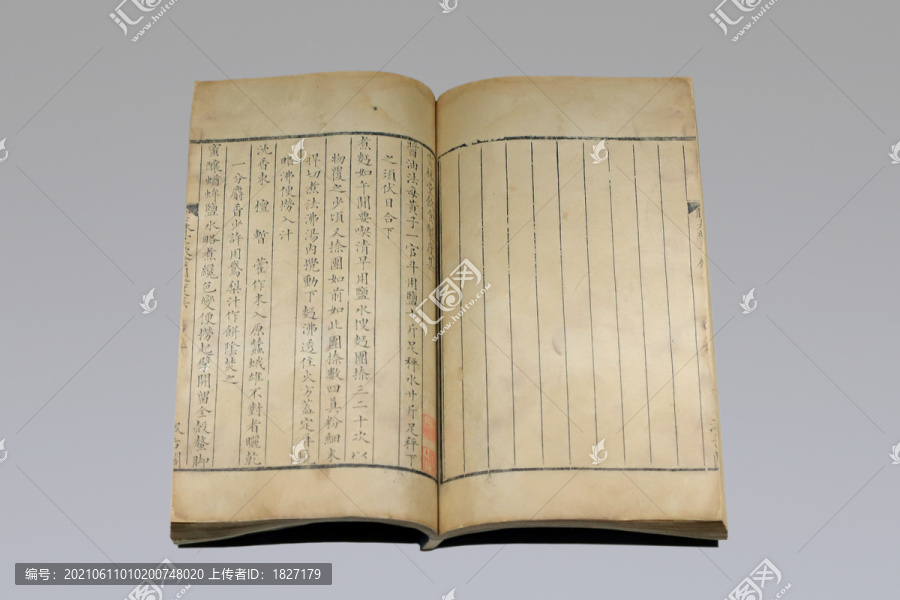 醬油法每黃子一官斗用鹽廿斤足秤水廿斤足秤下
之須伏日合下
煮麪如午間要喫清早用鹽水溲麪團捺三二十次以
物覆之少頃又捺團如前如此團捺數四真粉細末
捍切煮法沸湯內攪動下麪沸透住火方蓋定再
略沸便撈入汁
法香東檀暫藿作末入原蠶蛾雄不對者曬乾
一分麝香少許用鵞梨汁作餅陰焚之
蜜釀蝤蛑鹽水略煮纔色變便撈起擘開留全殼螯脚
汲古閣
编号：20210611010200748020 上传者ID：1827179
汇图网
www.huitu.com